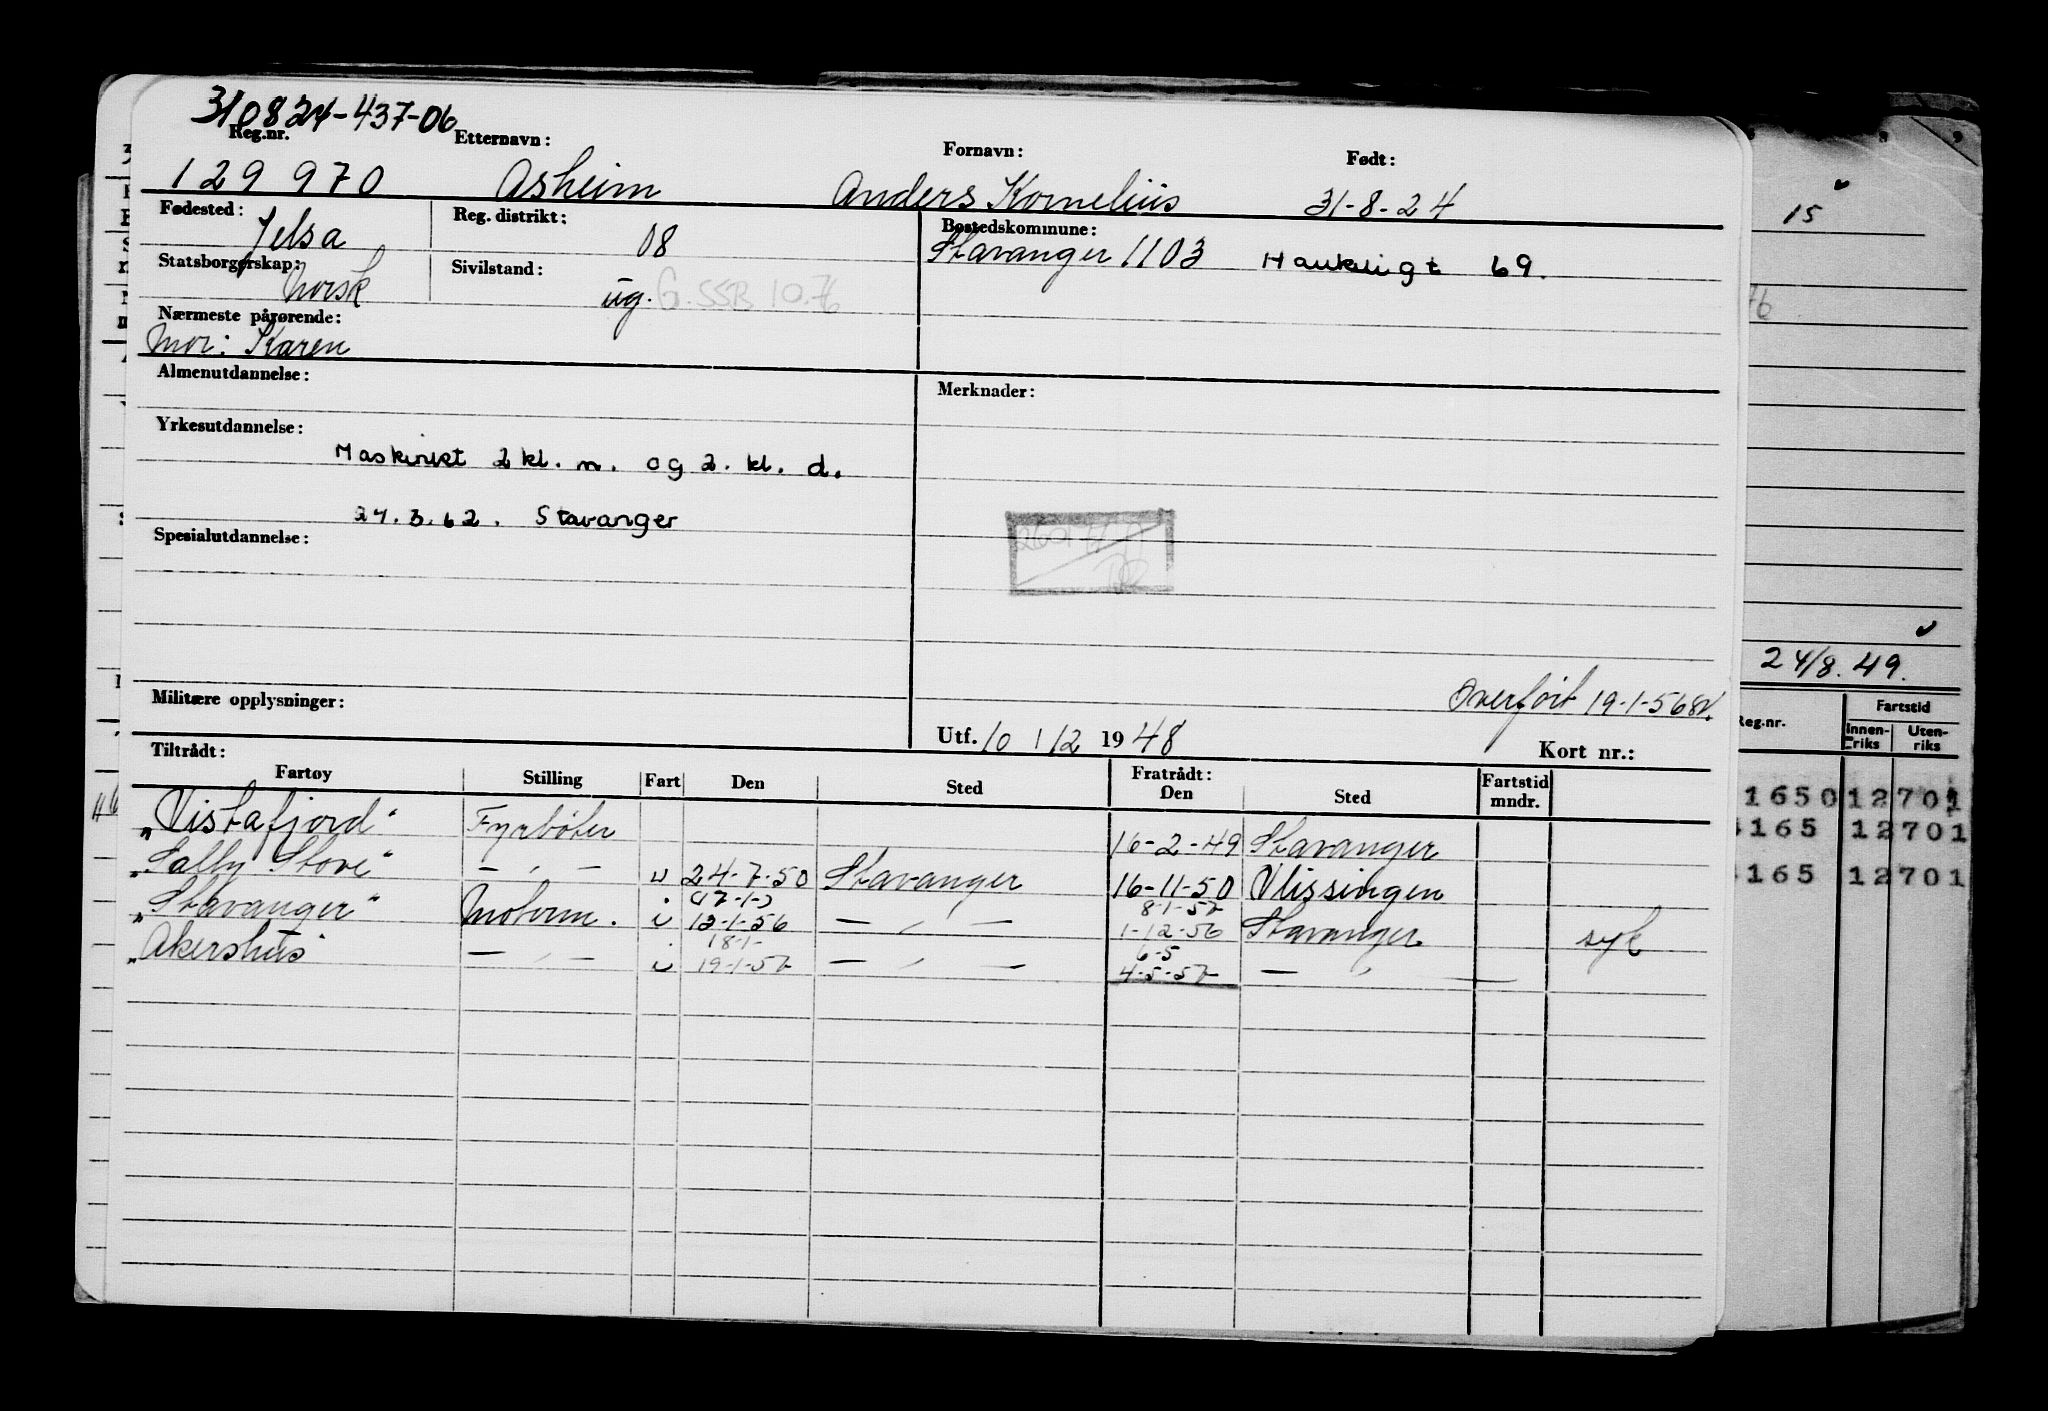 310824-437-06
Reg.nr. Etternavn: Fornavn: Født:
129 970 Asheim Anders Kornelius 31-8-24
Fødested: Jelsa Reg. distrikt: 08 Bostedskommune:
Stavanger 1103 Haukeligt 69.
Statsborgerskap: Norsk Sivilstand: ug. G. SSB 10.76
Nærmeste pårørende:
Mor: Karen
Almenutdannelse: Merknader:
Yrkesutdannelse:
Maskinist 2 kl. m. og 2. kl. d.
24.3.62. Stavanger
Spesialutdannelse:
Overført 19-1-56
Militære opplysninger:
Utf. 10 / 12 1948 Kort nr.:
Tiltrådt: Fratrådt:
Fartøy Stilling Fart Den Sted Den Sted Fartstid mndr.
"Vistafjord" Fyrbøter 16-2-49 Stavanger
"Sally Stove" — " — u 24-7-50 Stavanger 16-11-50 Vlissingen
(17-1-) 8-1-57
"Stavanger" Motorm. i 12-1-56 — " — 1-12-56 Stavanger syk
18-1- 6-5
"Akershus" — " — i 19-1-57 — " — 4-5-57 — " —
15
24/8.49.
Reg.nr. Fartstid
Innenriks Utenriks
1650 12701
4165 12701
4165 12701